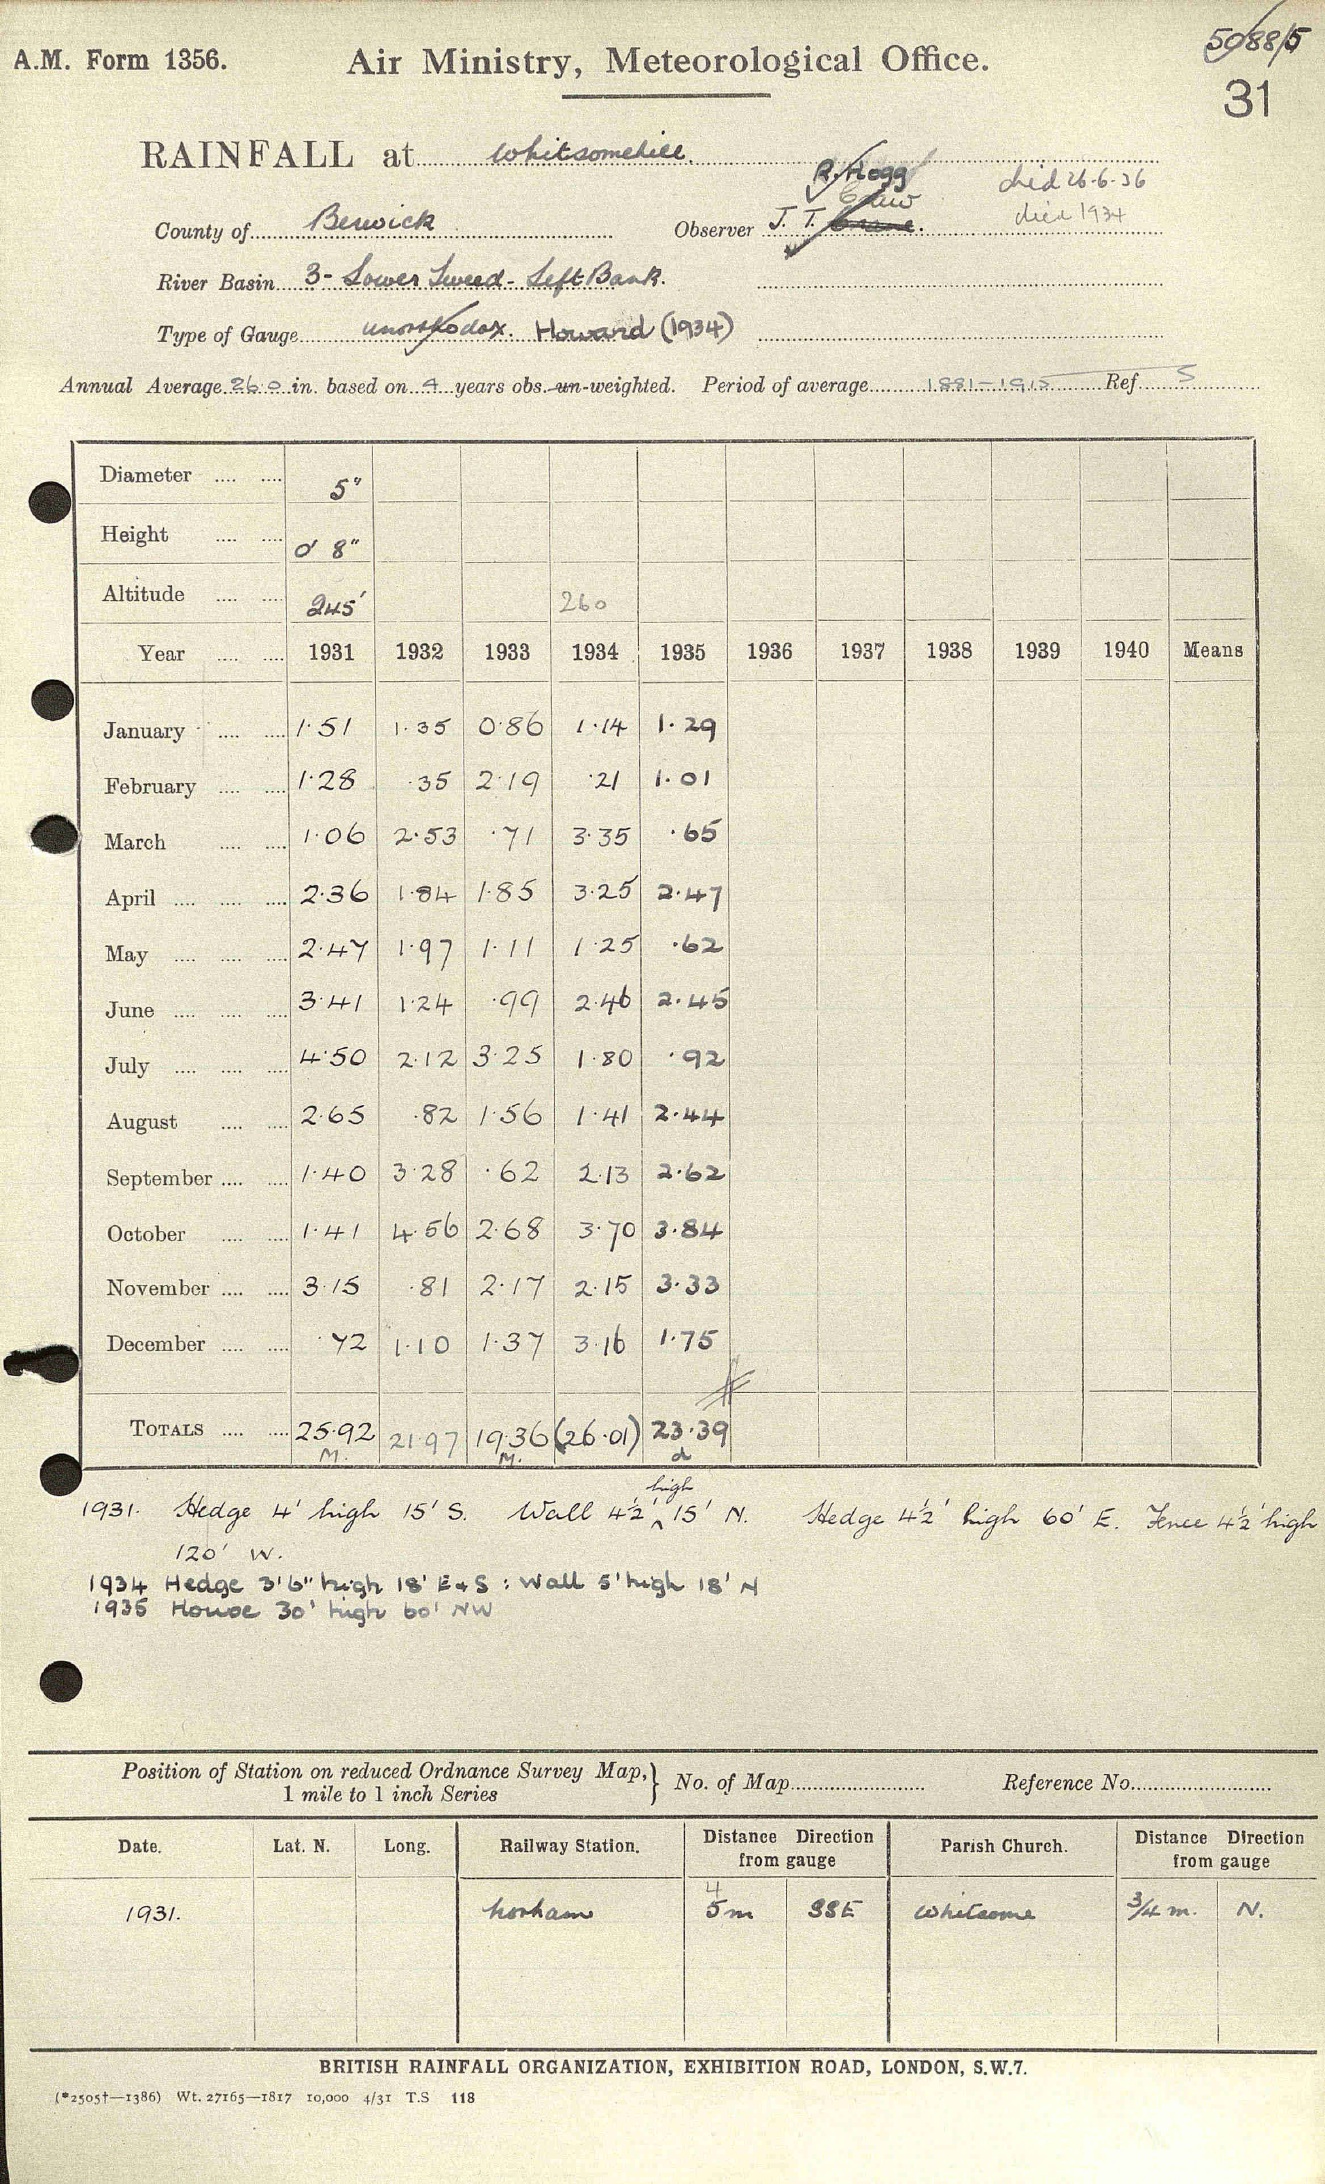 5088/5
A.M. Form 1356. Air Ministry, Meteorological Office.
31
RAINFALL at Whitsomehill.
R. Hogg died 26.6.36
Craw died 1934
County of Berwick Observer J. T.
River Basin 3- Lower Tweed - Left Bank.
Type of Gauge unorthodox. Howard (1934)
Annual Average 26.0 in. based on 4 years obs. un-weighted. Period of average 1881-1915 Ref. S
Diameter 5"
Height 0' 8"
Altitude 245' 260
Year 1931 1932 1933 1934 1935 1936 1937 1938 1939 1940 Means
January 1.51 1.35 0.86 1.14 1.29
February 1.28 .35 2.19 .21 1.01
March 1.06 2.53 .71 3.35 .65
April 2.36 1.84 1.85 3.25 2.47
May 2.47 1.97 1.11 1.25 .62
June 3.41 1.24 .99 2.46 2.45
July 4.50 2.12 3.25 1.80 .92
August 2.65 .82 1.56 1.41 2.44
September 1.40 3.28 .62 2.13 2.62
October 1.41 4.56 2.68 3.70 3.84
November 3.15 .81 2.17 2.15 3.33
December .72 1.10 1.37 3.16 1.75
TOTALS 25.92 21.97 19.36 (26.01) 23.39
M. M. d
1931. Hedge 4' high 15' S. Wall 4½' high 15' N. Hedge 4½' high 60' E. Fence 4½' high
120' W.
1934 Hedge 3'6" high 18' E & S : Wall 5' high 18' N
1935 House 30' high 60' NW
Position of Station on reduced Ordnance Survey Map,
1 mile to 1 inch Series } No. of Map Reference No.
Date. Lat. N. Long. Railway Station. Distance Direction from gauge Parish Church. Distance Direction from gauge
4
1931. Norham 5m SSE Whitsome ¾ m. N.
BRITISH RAINFALL ORGANIZATION, EXHIBITION ROAD, LONDON, S.W.7.
(*2505†—1386) Wt. 27165—1817 10,000 4/31 T.S 118